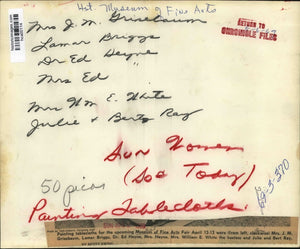 Hst. Museum of Fine Arts
Mrs J. M. Griesbaum
RETURN TO
CHRONICLE FILES
Lamar Briggs
Dr Ed Heyne
Mrs Ed "
Mrs Wm E. White
Julie & Bert Ray
Sun Women
(Soc Today)
50 picas
Painting Tablecloths
Painting tablecloths for the upcoming Museum of Fine Arts Fair April 12-13 were (from left, clockwise) Mrs. J. M.
Griesbaum, Lamar Briggs, Dr. Ed Heyne, Mrs. Heyne, Mrs. William E. White the hostess and Julie and Bert Ray.